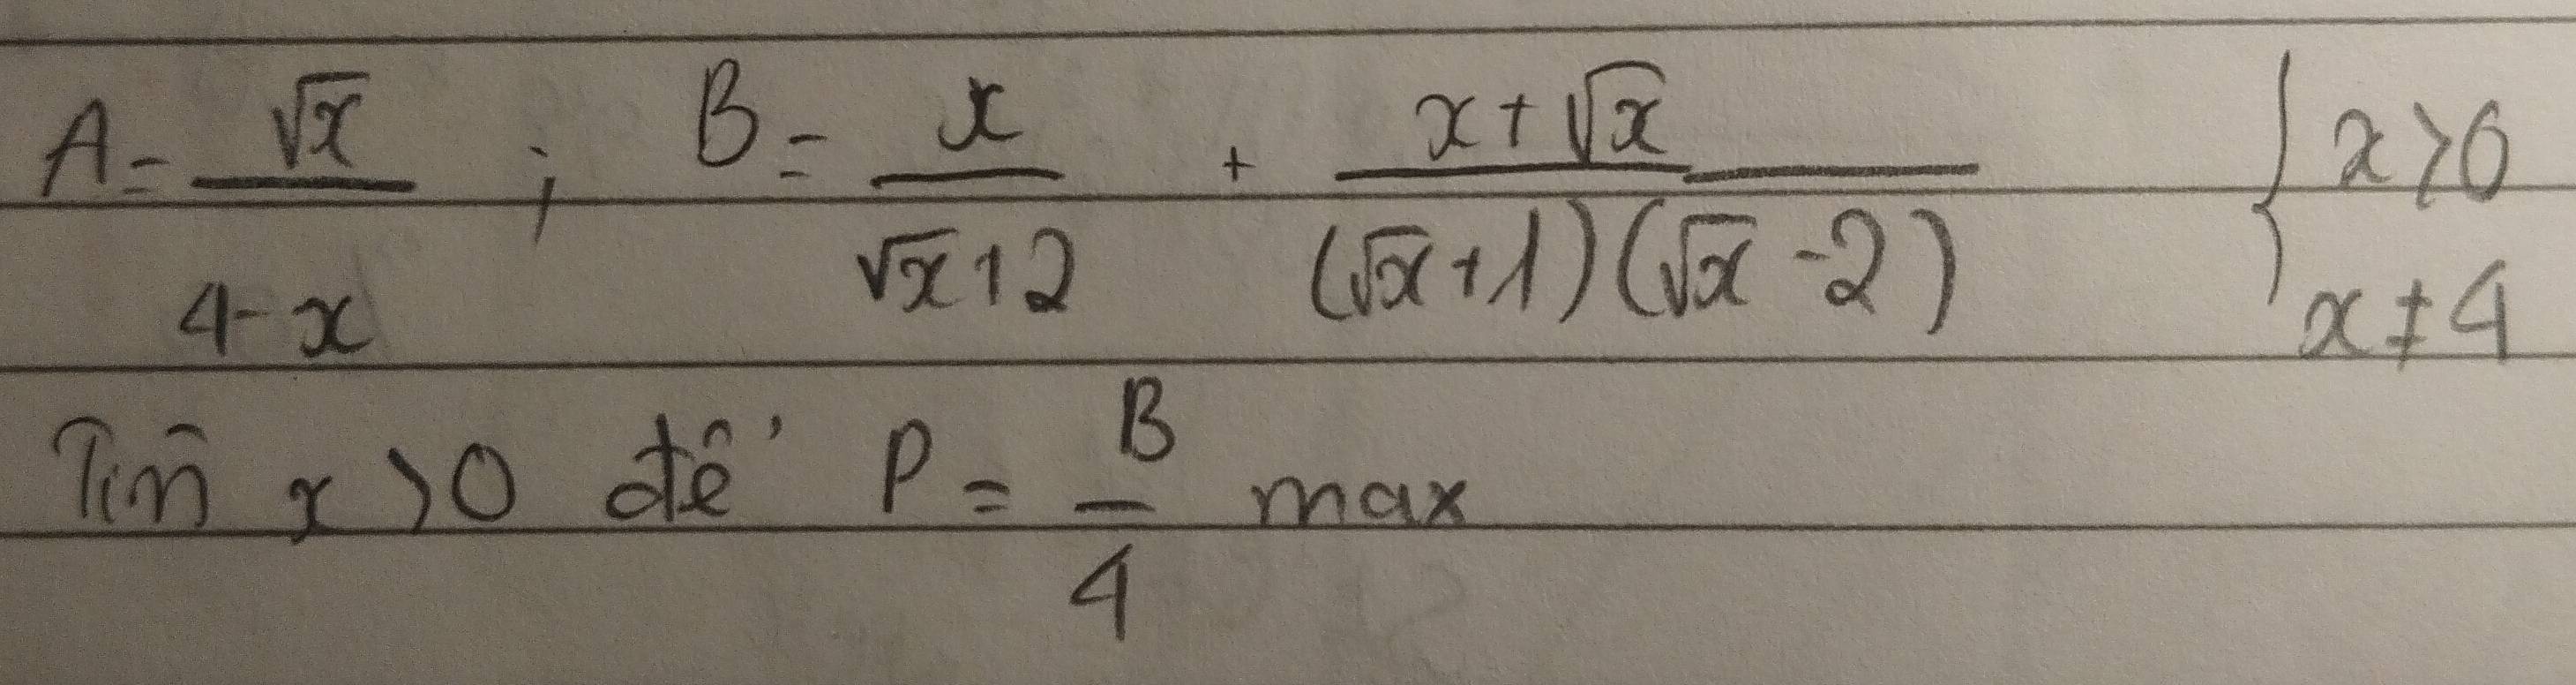 A = √x / (4 - x) ; B = x / (√x + 2) + (x + √x) / ((√x + 1)(√x - 2)) { x > 0
x ≠ 4
Tìm x > 0 để P = B / 4 max